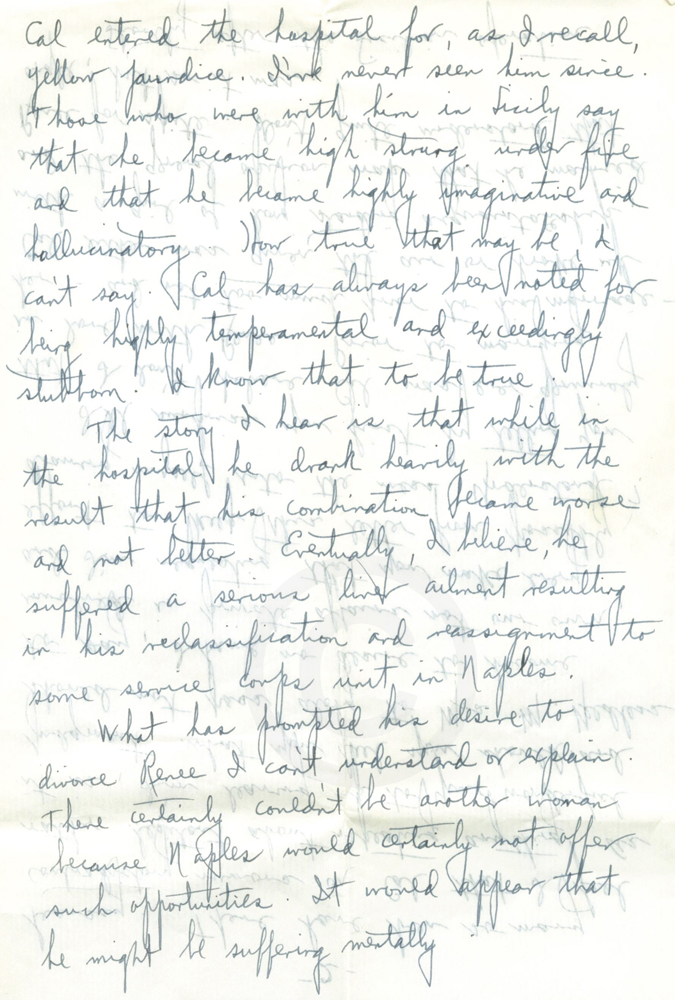 Cal entered the hospital for, as I recall,
yellow jaundice. I've never seen him since.
Those who were with him in Sicily say
that he became high strung under fire
and that he became highly imaginative and
hallucinatory. How true that may be, I
can't say. Cal has always been noted for
being highly temperamental and exceedingly
stubborn. I know that to be true.
The story I hear is that while in
the hospital he drank heavily with the
result that his combination became worse
and not better. Eventually, I believe, he
suffered a serious liver ailment resulting
in his reclassification and reassignment to
some service corps unit in Naples.
What has prompted his desire to
divorce Renee I can't understand or explain.
There certainly couldn't be another woman
because Naples would certainly not offer
such opportunities. It would appear that
he might be suffering mentally